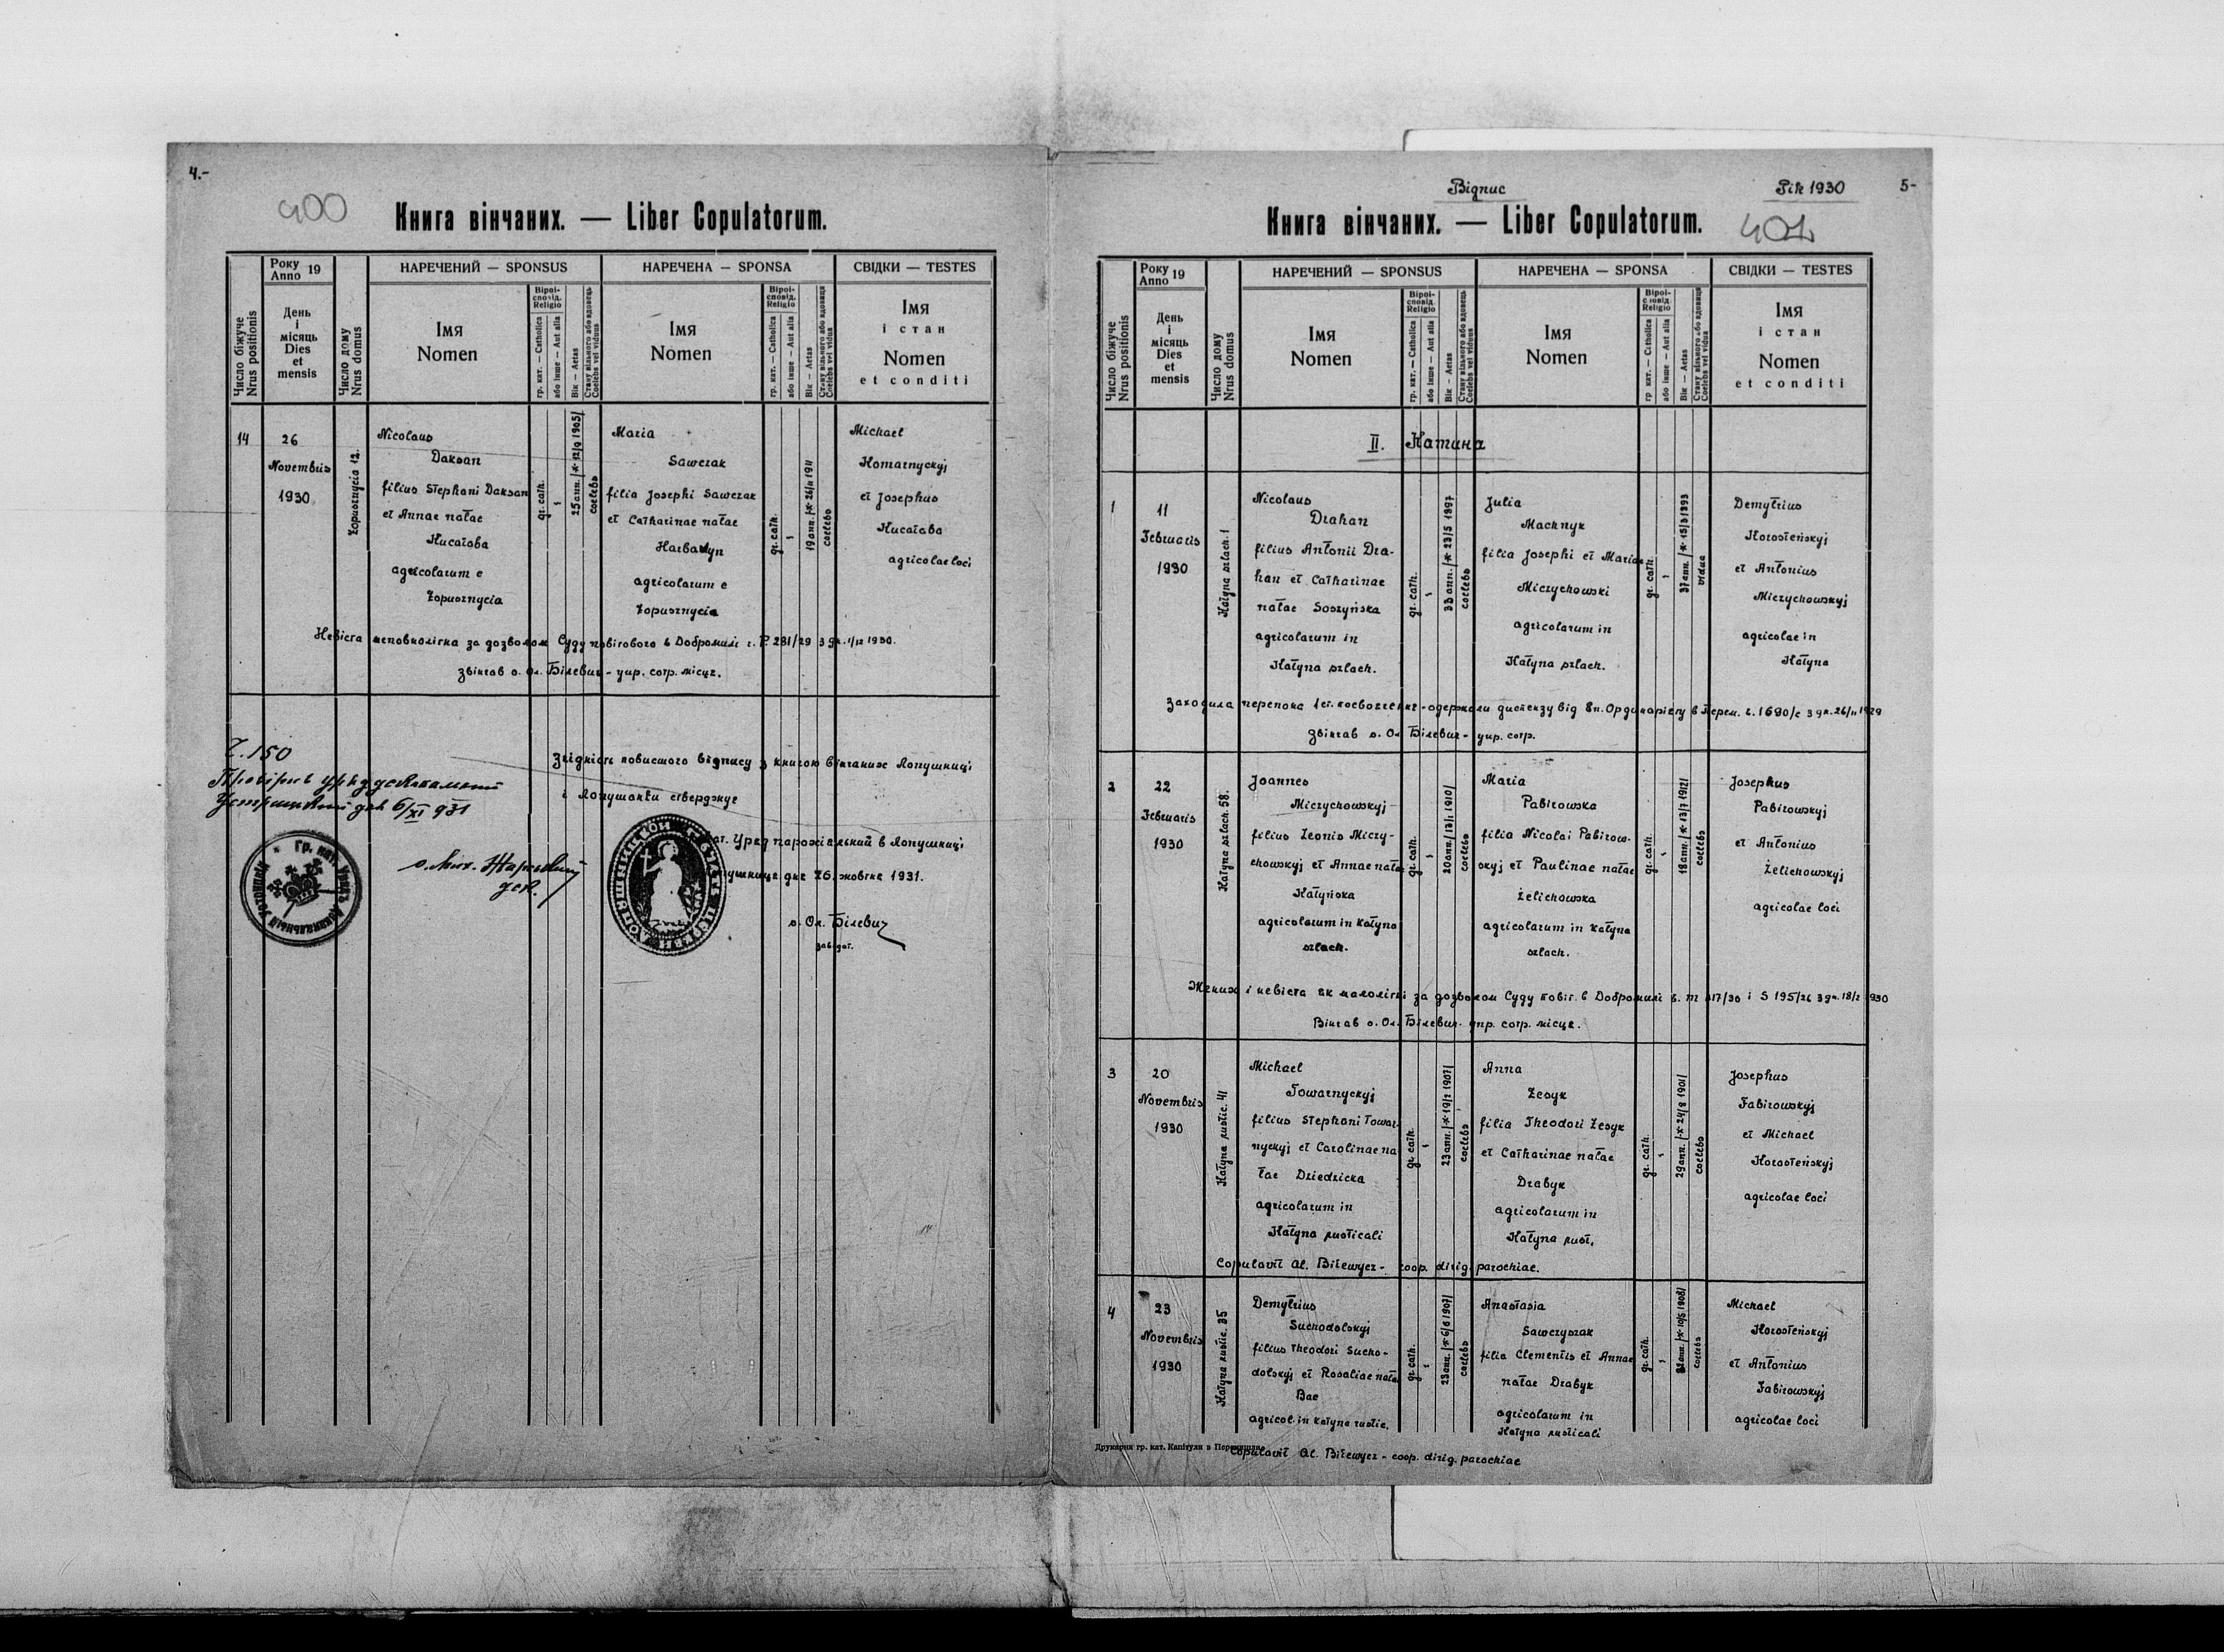 4.-
400
Книга вінчаних. — Liber Copulatorum.
Число біжуче
Nrus positionis
Року
Anno 19
День
і
місяць
Dies
et
mensis
Число дому
Nrus domus
НАРЕЧЕНИЙ — SPONSUS
Імя
Nomen
Віроі-
сповід.
Religio
гр. кат. — Catholica
або інше — Aut alia
Вік — Aetas
Стану вільного або вдовець
Coelebs vel viduus
НАРЕЧЕНА — SPONSA
Імя
Nomen
Віроі-
сповід.
Religio
гр. кат. — Catholica
або інше — Aut alia
Вік — Aetas
Стану вільного або вдовиця
Coelebs vel vidua
СВІДКИ — TESTES
Імя
і стан
Nomen
et conditi
14
26
Novembris
1930
Łopusznycia 12.
Nicolaus
Daksan
filius Stephani Daksan
et Annae natae
agricolarum e
Łopusznycia
gr. cath.
25 ann. /* 12/9 1905/
coelebs
Maria
Sawczak
filia Josephi Sawczak
et Catharinae natae
agricolarum e
Łopusznycia
gr. cath.
19 ann. /* 26/11 1911
coelebs
Michael
Komarnyckyj
et Josephus
agricolae loci
Невіста неповнолітна за дозволом Суду повітового в Добромилі ч. P. 281/29 з дн. 1/12 1930.
звінчав о. Ол. Білевич - упр. сотр. місце.
Ч. 150
6/XI 931
Згідність повисшого відпису з книгою вінчаних Лопушниці
і Лопушанки стверджує
Уряд парохіяльний в Лопушниці
дня 26. жовтня 1931.
о. Ол. Білевич
завідат.
Віднис
Рік 1930
5-
401
Книга вінчаних. — Liber Copulatorum.
Число біжуче
Nrus positionis
Року
Anno 19
День
і
місяць
Dies
et
mensis
Число дому
Nrus domus
НАРЕЧЕНИЙ — SPONSUS
Імя
Nomen
Віроі-
сповід.
Religio
гр. кат. — Catholica
або інше — Aut alia
Вік — Aetas
Стану вільного або вдовець
Coelebs vel viduus
НАРЕЧЕНА — SPONSA
Імя
Nomen
Віроі-
сповід.
Religio
гр. кат. — Catholica
або інше — Aut alia
Вік — Aetas
Стану вільного або вдовиця
Coelebs vel vidua
СВІДКИ — TESTES
Імя
і стан
Nomen
et conditi
II. Натина
1
11
Februaris
1930
Katyna szlach. 1
Nicolaus
Drahan
filius Antonii Dra-
han et Catharinae
natae Soszyńska
agricolarum in
Katyna szlach.
gr. cath.
33 ann. /* 23/5 1897
coelebs
Julia
Machnyk
filia Josephi et Mariae
Miczychowski
agricolarum in
Katyna szlach.
gr. cath.
37 ann. /* 15/3 1893
vidua
Demytrius
Horosteńskyj
et Antonius
Miczychowskyj
agricolae in
Katyna
Заходила перепона 1 ст. посвоячення - одержали диспензу від Вп. Ординаріяту в Перем. ч. 1690/с з дн. 26/11 1929
Звінчав о. Ол. Білевич - упр. сотр.
2
22
Februaris
1930
Katyna szlach. 58.
Joannes
Miczychowskyj
filius Leonis Miczy-
chowskyj et Annae natae
Katyńska
agricolarum in Katyna
szlach.
gr. cath.
20 ann. / 13/1 1910/
coelebs
Maria
Fabirowska
filia Nicolai Fabirow-
skyj et Paulinae natae
Żelichowska
agricolarum in Katyna
szlach.
gr. cath.
18 ann. /* 13/7 1912/
coelebs
Josephus
Fabirowskyj
et Antonius
Żelichowskyj
agricolae loci
Жених і невіста як малолітні за дозволом Суду повіт. в Добромилі ч. m 117/30 і S 195/26 з дн. 18/2 1930
Вінчав о. Ол. Білевич - упр. сотр. місце.
3
20
Novembris
1930
Katyna rustic. 41
Michael
Towarnyckyj
filius Stephani Towar-
nyckyj et Carolinae na
tae Dziedzicka
agricolarum in
Katyna rusticali
gr. cath.
23 ann. /* 19/2 1907/
coelebs
Anna
Lesyk
filia Theodori Lesyk
et Catharinae natae
Drabyk
agricolarum in
Katyna rust.
gr. cath.
29 ann. /* 24/8 1901/
coelebs
Josephus
Fabirowskyj
et Michael
Horosteńskyj
agricolae loci
Copulavit Al. Biłewycz - coop. dirig. parochiae.
4
23
Novembris
1930
Katyna rustic. 35
Demytrius
Suchodolskyj
filius Theodori Sucho-
dolskyj et Rosaliae natae
Bac
agricol. in Katyna rustic.
gr. cath.
23 ann. /* 6/6 1907/
coelebs
Anastasia
Sawczyszak
filia Clementis et Annae
natae Drabyk
agricolarum in
Katyna rusticali
gr. cath.
ann. /* 10/5 1908/
coelebs
Michael
Horosteńskyj
et Antonius
Fabirowskyj
agricolae loci
Друкарня гр. кат. Капітули в Перемишлі
Copulavit Al. Biłewycz - coop. dirig. parochiae